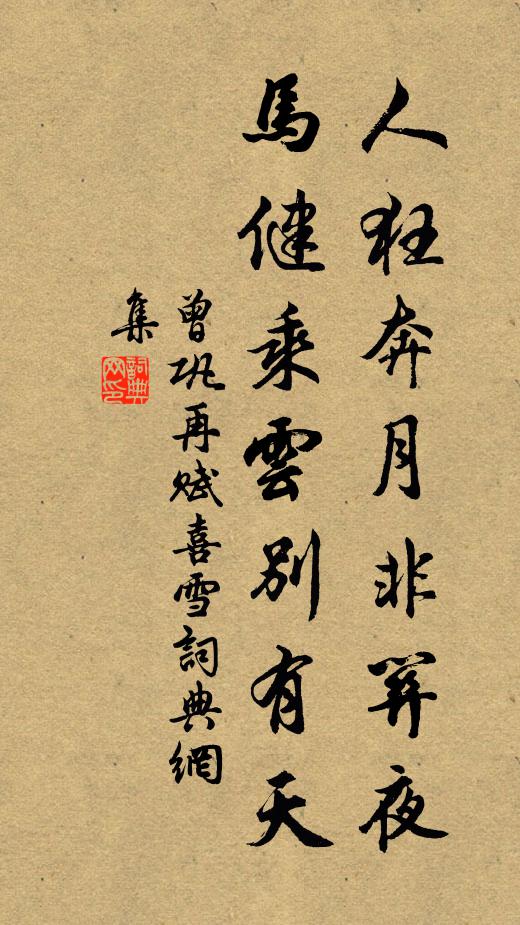 人狂奔月非筭夜
馬健乘雲別有天
曾巩再賦喜雪詞典網
集
詞典網印